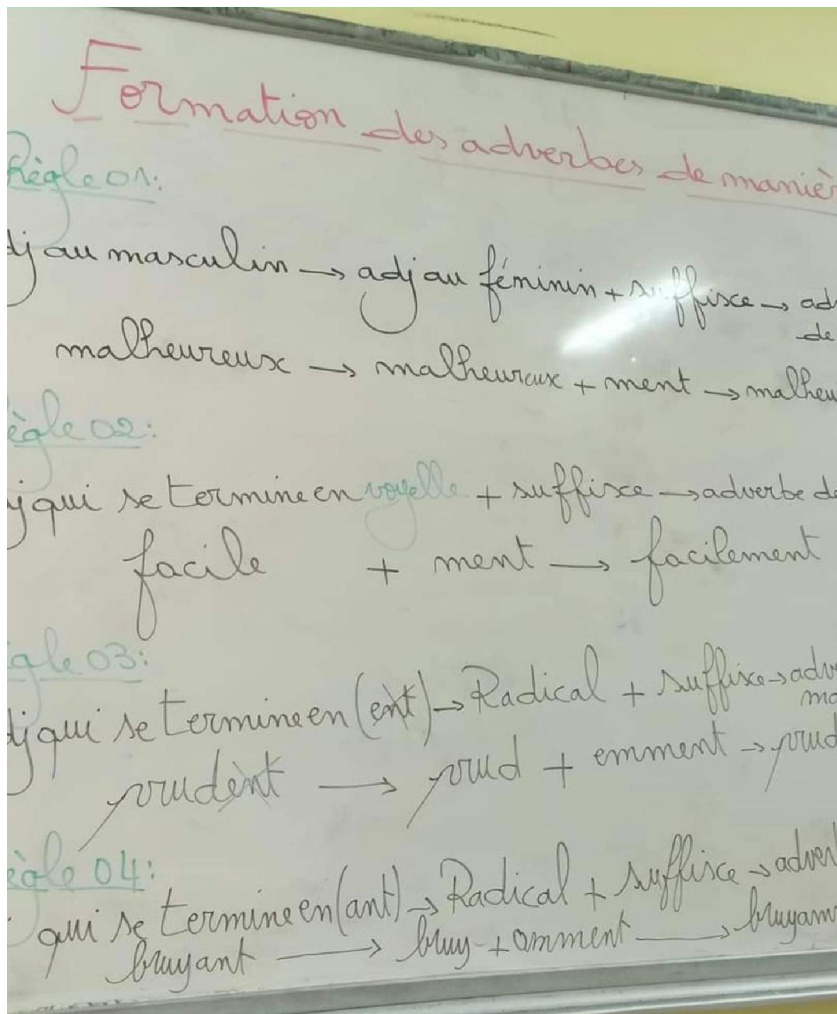 Formation des adverbes de manièr
Règle 01:
dj au masculin → adj au féminin + suffixe → ad
de
malheureux → malheureux + ment → malheu
ègle 02:
j qui se termine en voyelle + suffixe → adverbe de
facile + ment → facilement
gle 03:
dj qui se termine en (ent) → Radical + suffixe → adv
ma
prudent → prud + emment → prud
ègle 04:
qui se termine en (ant) → Radical + suffixe → adver
bruyant → bruy + amment → bruyam